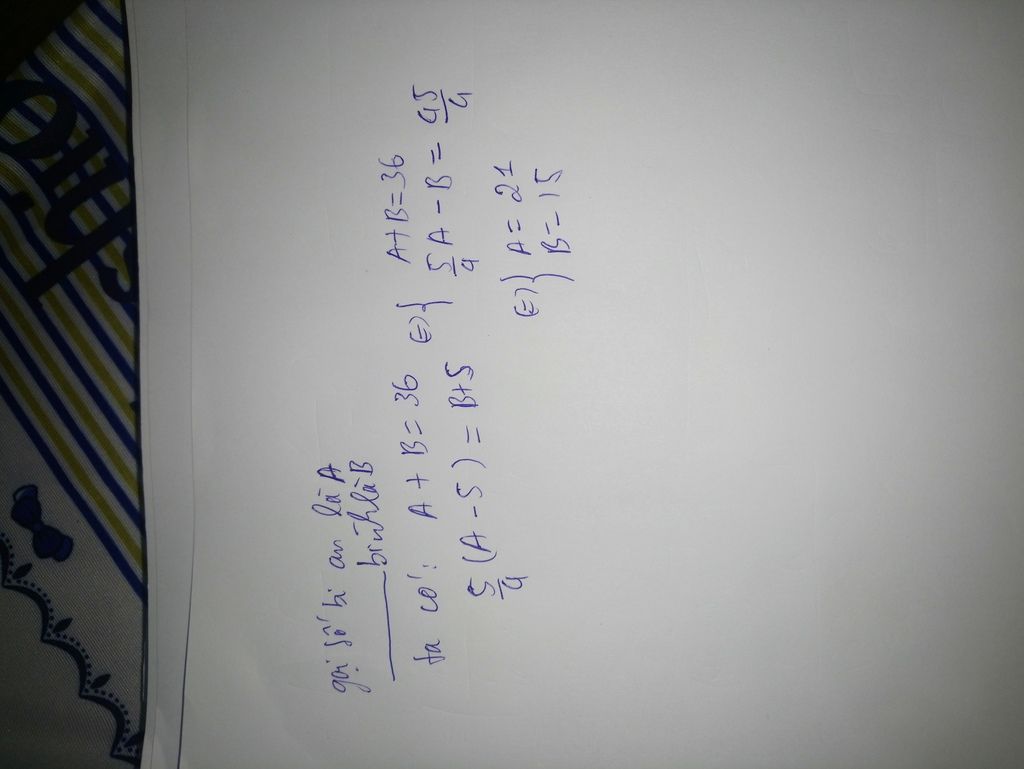 gọi số bi an là A
bình là B
ta có: A + B = 36 (=) { A+B=36
5/4 (A - 5) = B+5 5/4 A - B = 45/4
(=) } A = 21
B = 15